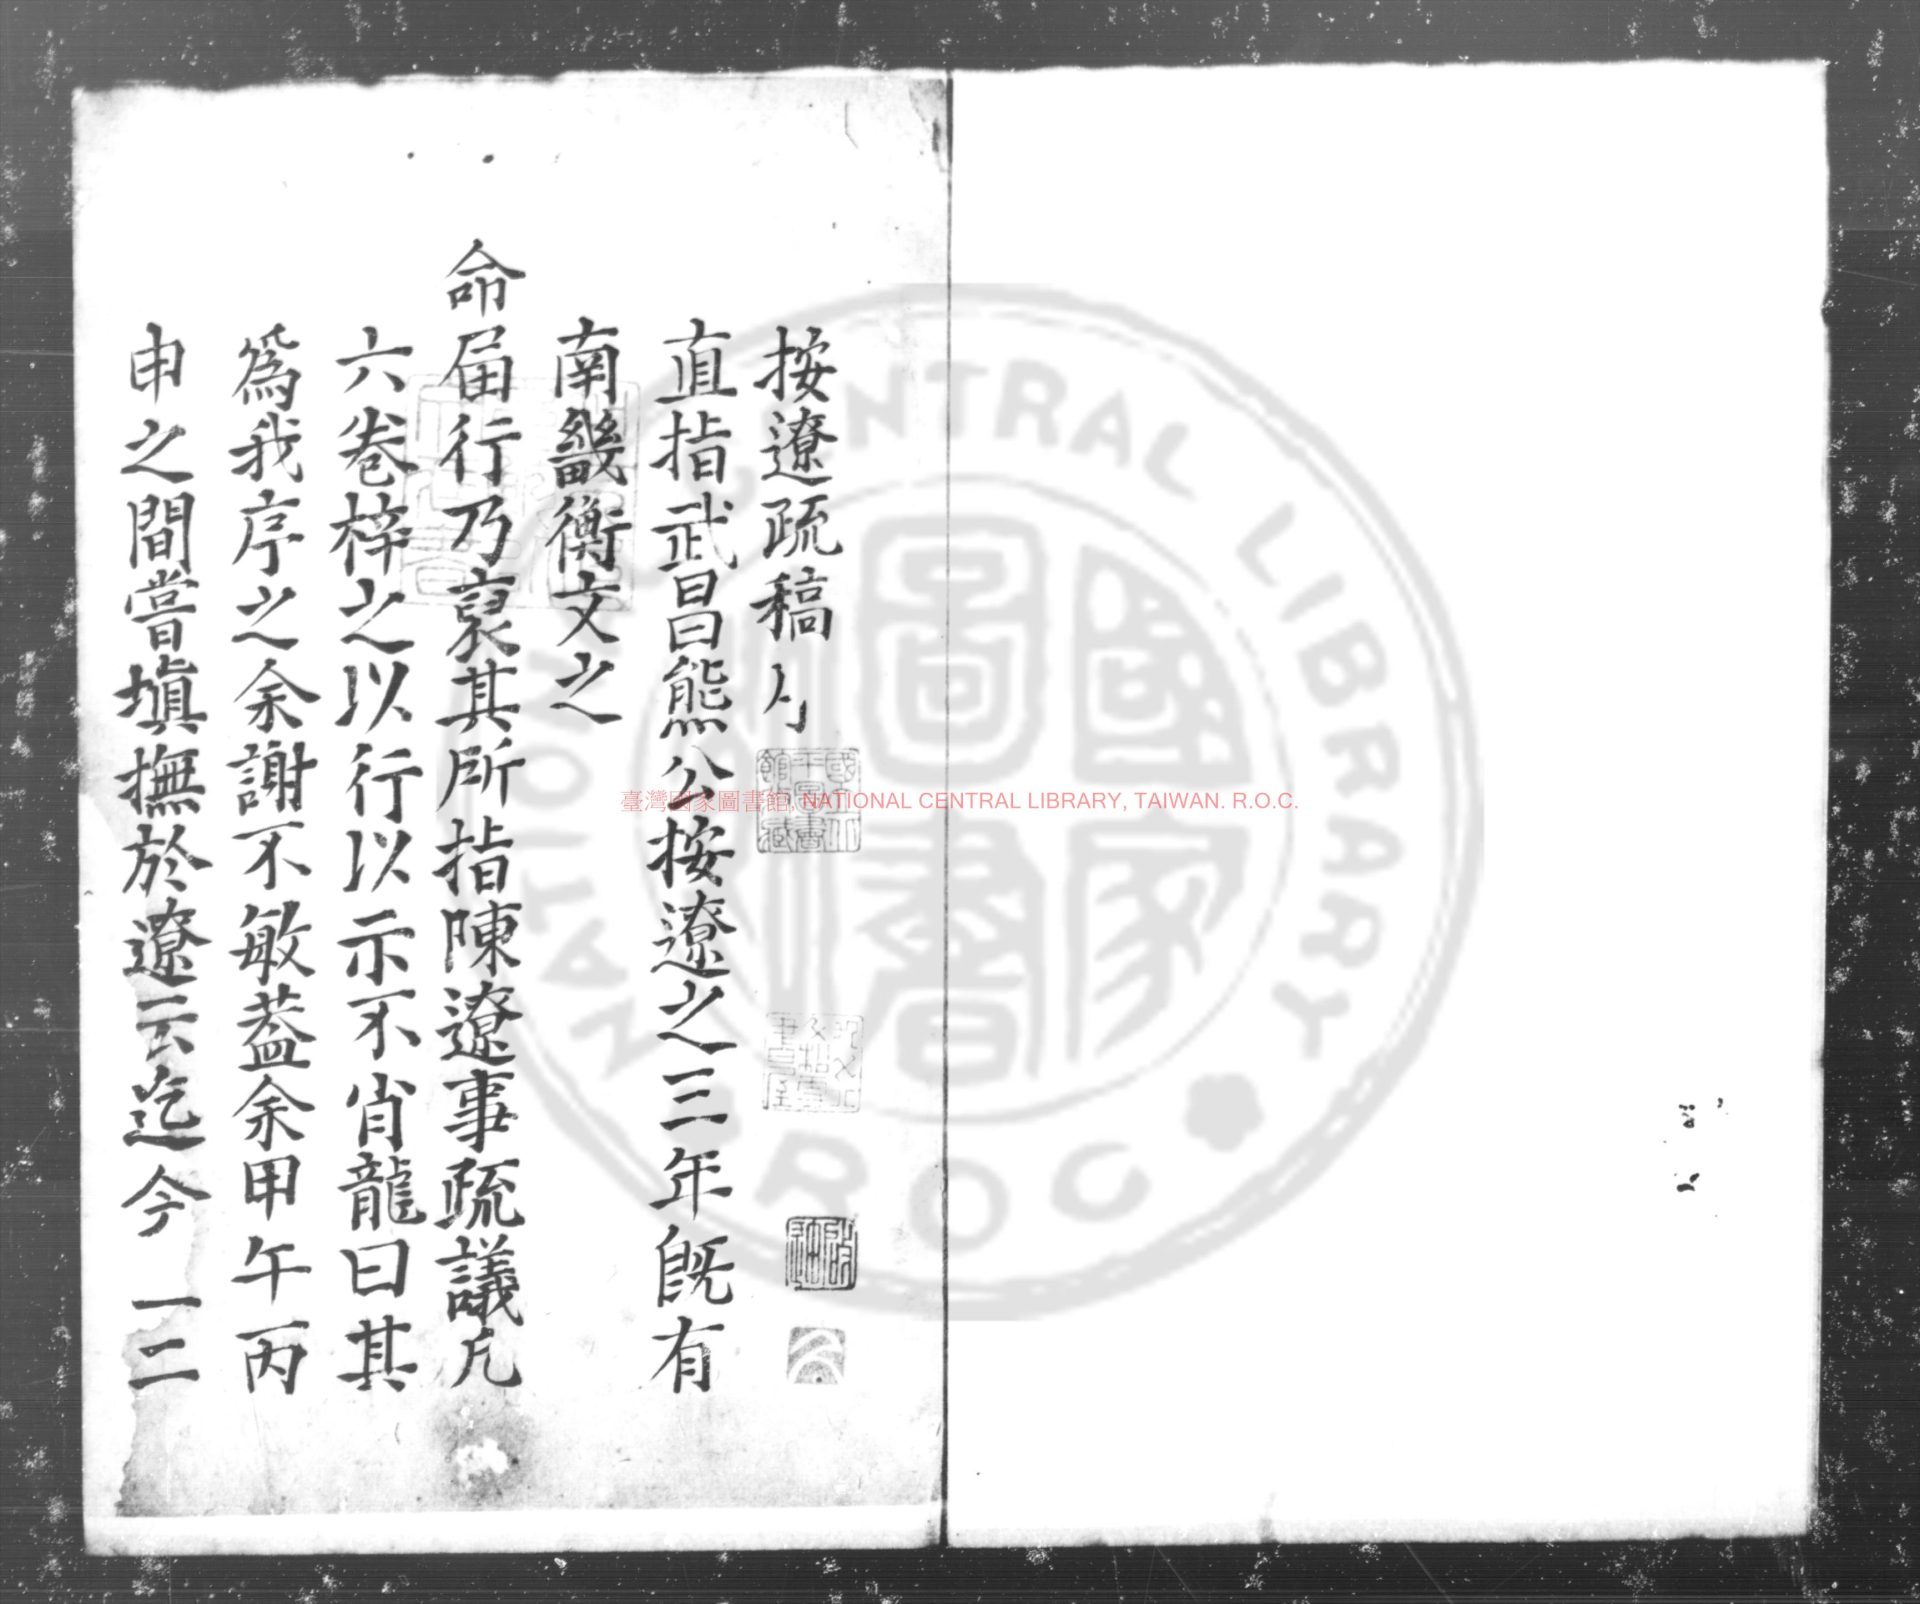 按遼疏稿
直指武昌熊公按遼之三年旣有
南畿衡文之
命届行乃裒其所指陳遼事疏議凡
六卷梓之以行以示不肖龍曰其
爲我序之余謝不敏葢余甲午丙
申之間嘗塡撫於遼云迄今一二
臺灣國家圖書館, NATIONAL CENTRAL LIBRARY, TAIWAN. R.O.C.
NATIONAL CENTRAL LIBRARY
R O C
國家圖書
國立中央圖書館收藏